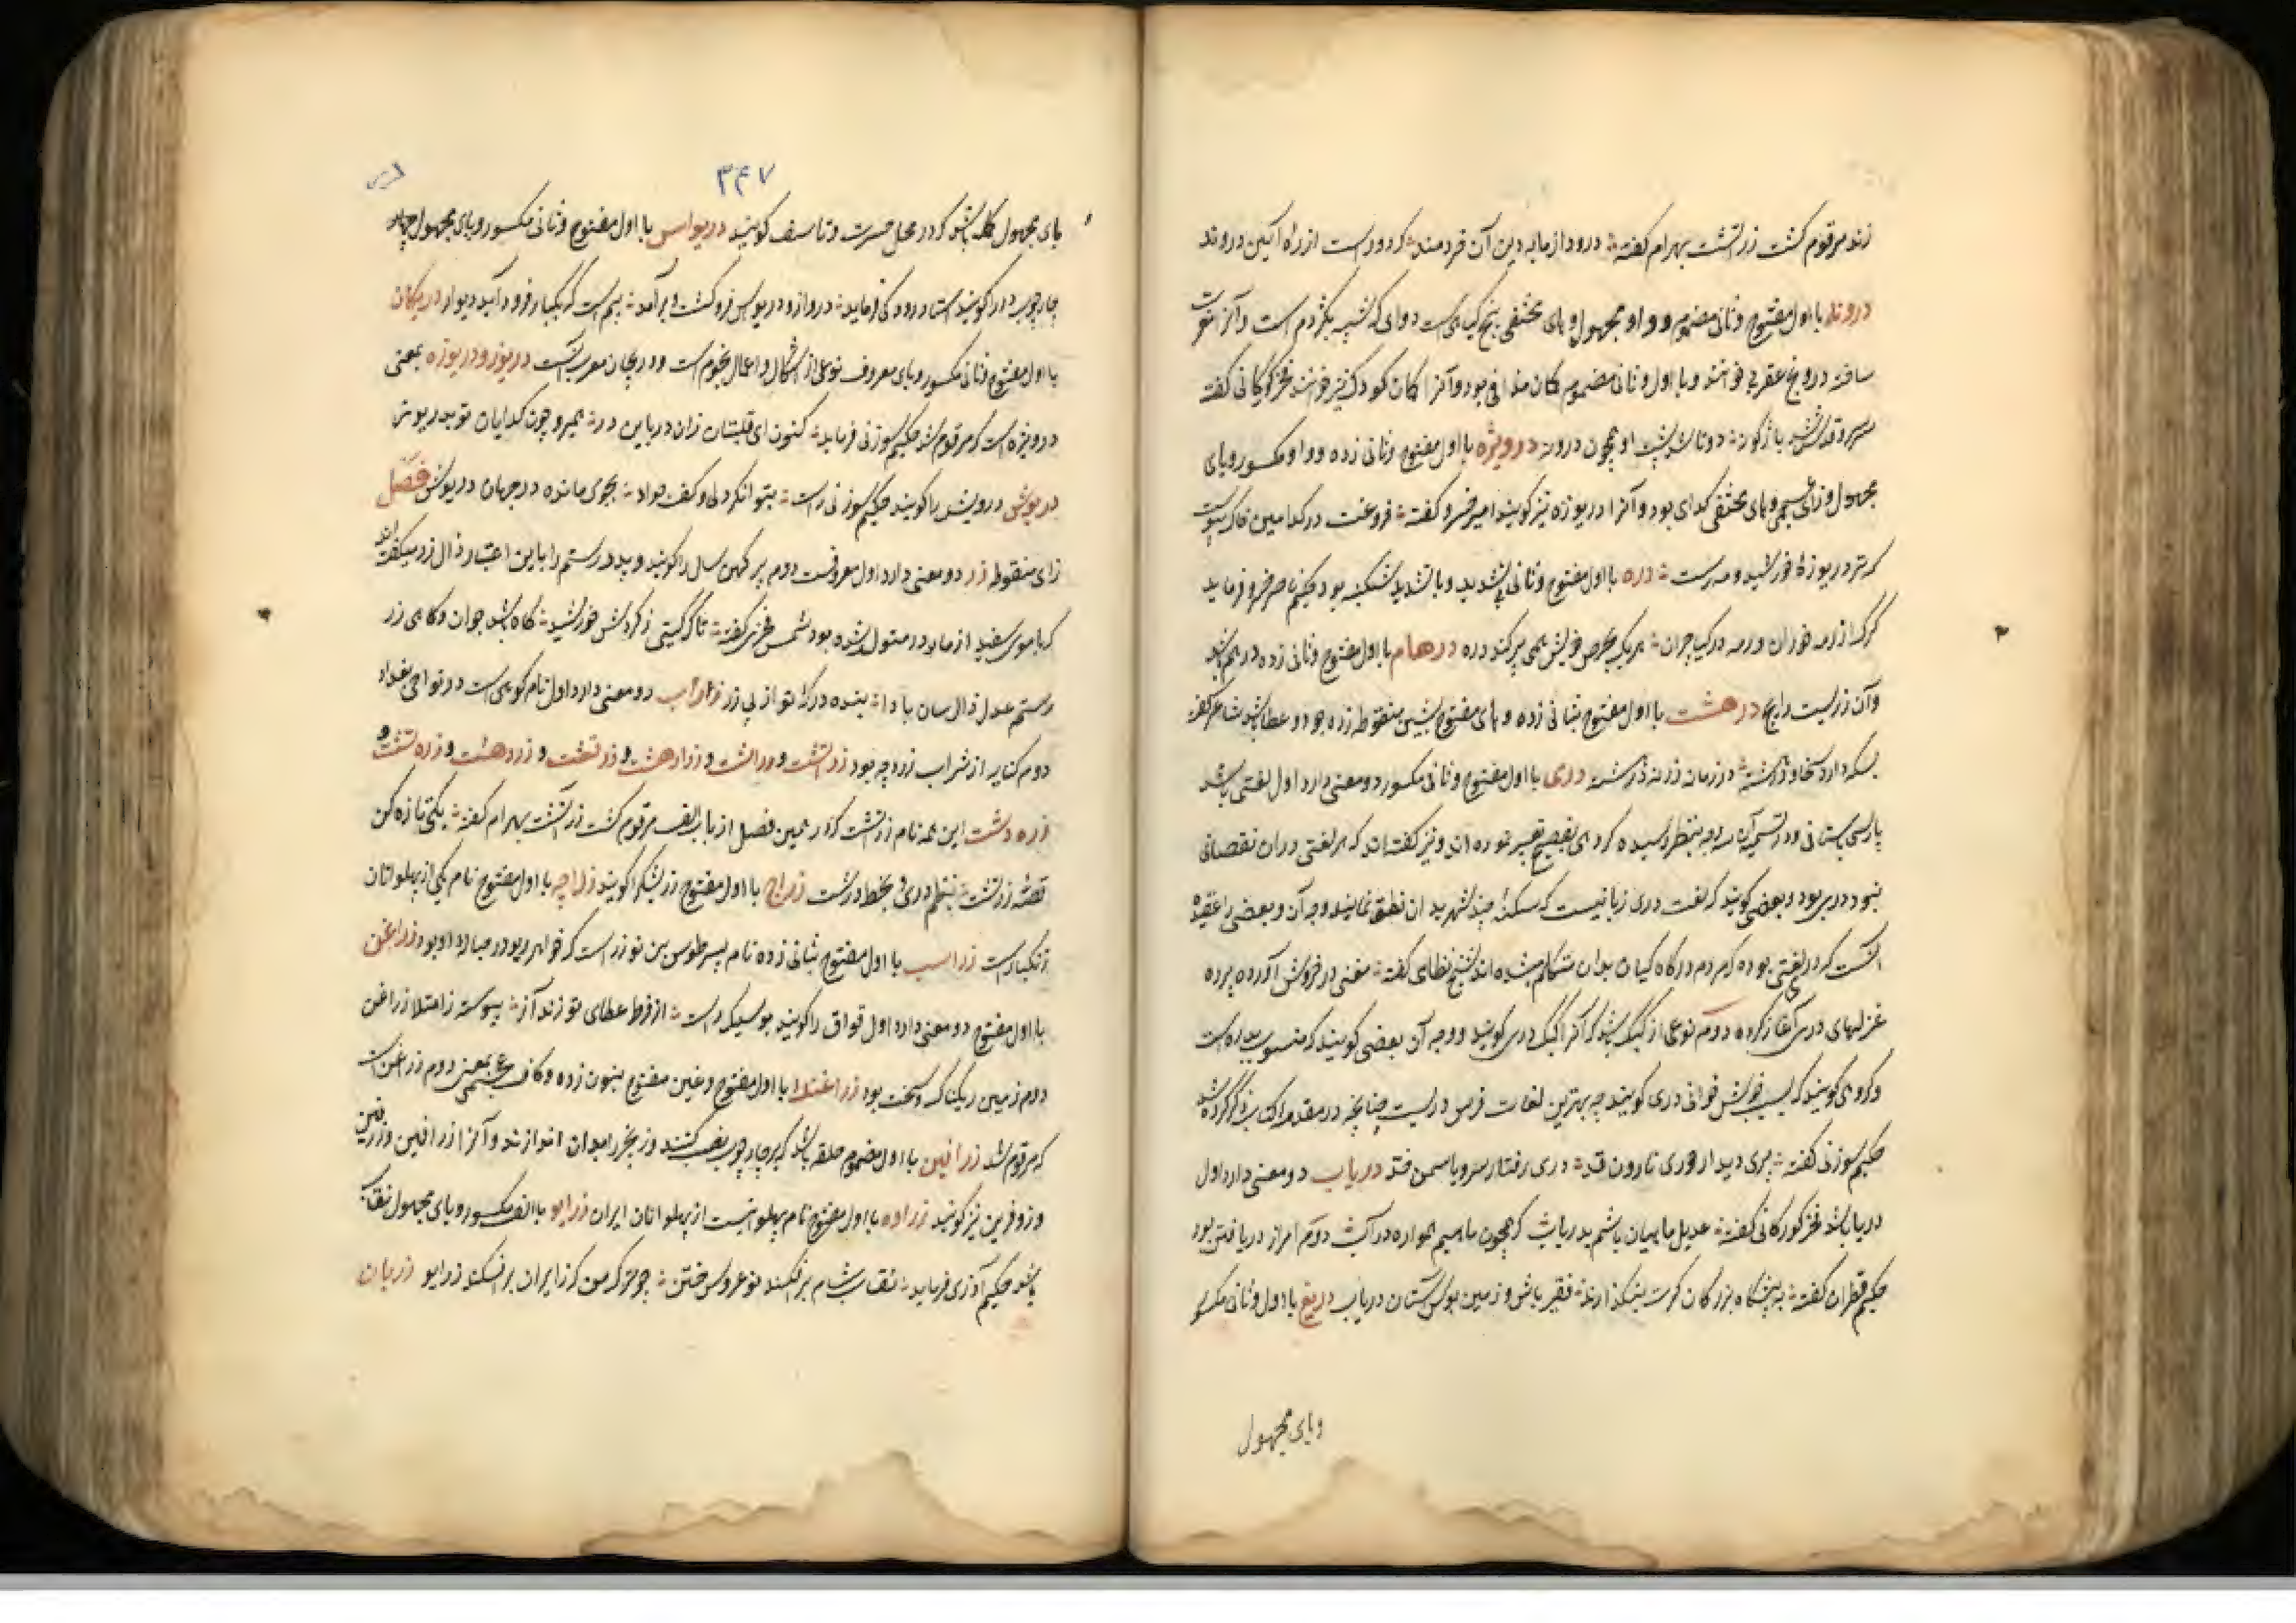 زند مرقوم گشت زرتشت بهرام گفته درود از ما به دین آن خردمند که دورست از راه آیین دروند
دروند با اول مفتوح و ثانی مضموم و واو مجهول و های مختفی بیخ گیاهی است دوایی که شبیه بکژدم است و آنرا
ساخته دروخ عقربی خوانند و با اول و ثانی مضموم کمان ندافی بود و آنرا کمان کودک نیز خوانند فخر گرگانی گفته
سرو قدش شد باژگونه دوتا شد پشت او همچون درونه درویزه با اول مفتوح و ثانی زده و واو مکسور و یای
مجهول و زای عجمی و های مختفی گدایی بود و آنرا دریوزه نیز گویند امیر خسرو گفته فروغت در کدامین خاک پیوست
که نزد دریوزهٔ خورشید و مه رست دره با اول مفتوح و ثانی بتشدید و با تشدید شکنبه بود حکیم ناصر خسرو فرماید
گرگ از رمه خواران و رمه در گیا چران هر یک بحرص خویش همی پر کند دره درهام با اول مفتوح و ثانی زده درهم باشد
و آن زریست رایج درهشت با اول مفتوح بثانی زده و های مفتوح بشین منقوطه زده جود و عطا باشد شاعر گفته
بسکه دارد سخا و درهشته در زمان زر نه درهشته دری با اول مفتوح و ثانی مکسور دو معنی دارد اول لغتی باشد
پارسی باستانی و در تسمیه آن سه وجه بنظر رسیده گروهی بفصیح تعبیر نموده اند و نیز گفته اند که هر لغتی دران نقصانی
نبود دری بود و بعضی گویند که لغت دری زبانیست که سکنهٔ چند شهر بدان نطق نمایند وجه آن و بعضی را عقیده
آنست که دری لغتی بوده که مردم درگاه کیان بدان متکلم میشده اند شیخ نظامی گفته مغنی در خروش آورده پرده
غزلهای دری آغاز کرده دوم نوعی از کبک باشد که آنرا کبک دری گویند و وجه آن بعضی گویند که منسوب بدره است
و گروهی گویند که بسبب خوش خوانی دری گویند چه بهترین لغات فرس دریست چنانچه در مقدمه کتاب ذکر کرده شد
حکیم سوزنی گفته پری دیدار حوری نارون قد دری رفتار سرو یاسمن خد دریاب دو معنی دارد اول
دریا باشد فخر گورگانی گفته عدیل ماهیان باشم بدریاب که همچون ماهیم همواره در آب دوم امر از دریافتن بود
حکیم قطران گفته به پیشگاه بزرگان گرت بنگذارند فقیر باش و زمین بوس آستان دریاب دریغ با اول و ثانی مکسور
ویای مجهول
۳۴۷
یای مجهول کلمه باشد که در محل حسرت و تاسف گویند دریواس با اول مفتوح و ثانی مکسور و یای مجهول چهار
چارچوب در را گویند استاد رودکی فرماید دروازه و دریواس فروگشت و برآمد بیم است که یکبار فرود آید دیوار دریکان
با اول مفتوح و ثانی مکسور و یای معروف نوعی از اشکال و اعمال نجوم است و دریجان معرب آنست دریوز و دریوزه بمعنی
درویزه است که مرقوم شد حکیم سوزنی فرماید کنون ای قلتبان زان در باین در همیرو چون گدایان تو بدریوش
دریوش درویش را گویند حکیم سوزنی راست بتوانگر دلی و کف جواد بجوی مانده در جهان دریوش فصل
زای منقوطه زر دو معنی دارد اول معروفست دوم پیر کهن سال را گویند و پدر رستم را باین اعتبار زال زر میگفته اند
که با موی سفید از مادر متولد شده بود شمس فخری گفته تا که گیتی ز گردش خورشید گاه باشد جوان و گاهی زر
رستم عدل زال سان بادا بنده درگه تو از پی زر زراب دو معنی دارد اول نام کوهی است در نواحی بغداد
دوم کنایه از شراب زرد چه بود زرتشت و زراتشت و زرادهشت و زرتهشت و زردهشت و زره تشت و
زره دشت این همه نام زرتشت که در همین فصل از باب الف مرقوم گشت زرتشت بهرام گفته یکی تازه کن
قصهٔ زرتشت بنظم دری و بخط درشت زراج با اول مفتوح زرشک را گویند زراچه با اول مفتوح نام یکی از پهلوانان
زنگبار است زراسب با اول مفتوح بثانی زده نام پسر طوس بن نوذر است که خواهر ریو در حباله او بود زراغن
با اول مفتوح دو معنی دارد اول فواق را گویند بوسلیک راست از فرط عطای تو زند آز پیوسته ز امتلا زراغن
دوم زمین ریگناک و سخت بود زراغنک با اول مفتوح و غین مفتوح بنون زده و کاف عجمی بمعنی دوم زراغن است
که مرقوم شد زرافین با اول مضموم حلقه باشد که بر چارچوب نصب کنند و زنجیر را بدان اندازند و آنرا زرافین و زرفین
و زوفرین نیز گویند زراوه با اول مفتوح نام پهلوانیست از پهلوانان ایران زرایو با الف مکسور و یای مجهول نقاب
باشد حکیم آذری فرماید نقاب شام برافکند نوعروس ختن چو ترک من که ز ایران برافکند زرایو زربان